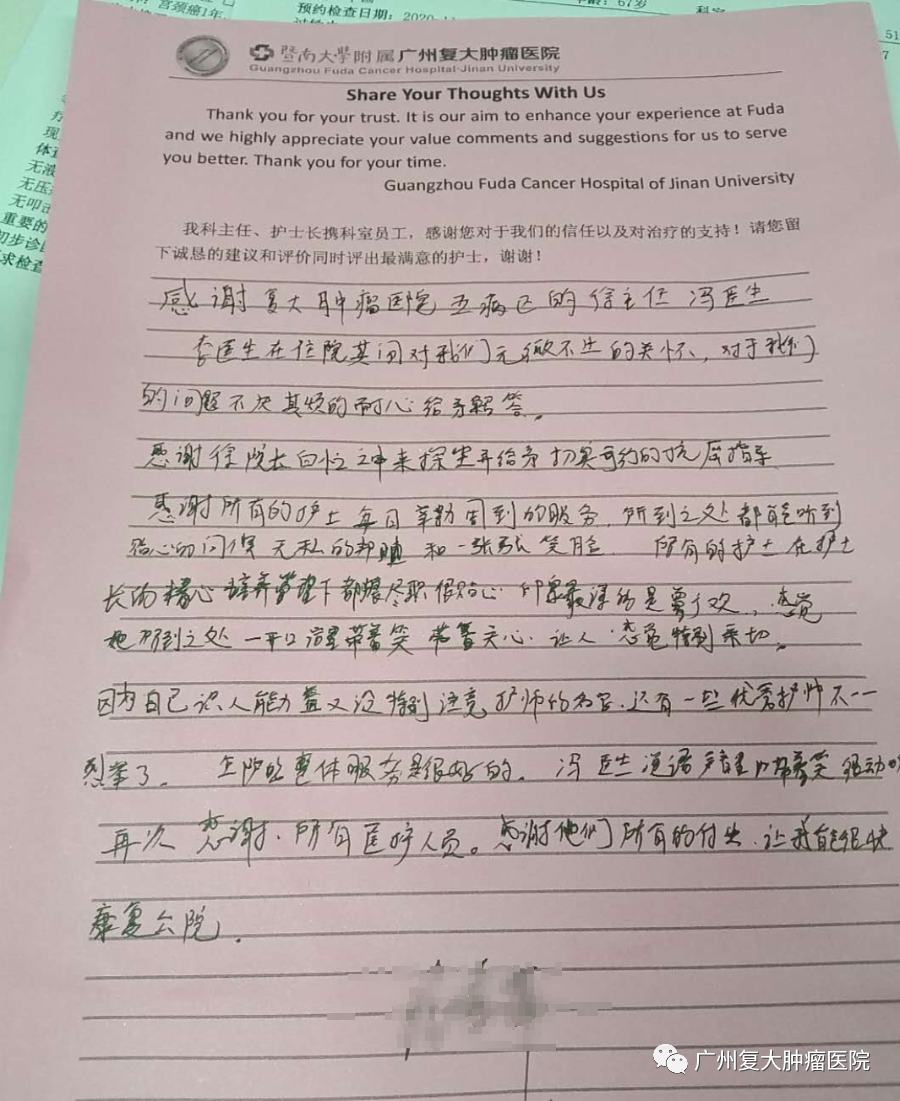 宫颈癌1年
预约检查日期：2020-11
年龄：67岁
科室
51
7
疗
现
体
无液
无压
无叩击
重要的
初步诊
求检查
暨南大學附属广州复大肿瘤医院
Guangzhou Fuda Cancer Hospital·Jinan University
Share Your Thoughts With Us
Thank you for your trust. It is our aim to enhance your experience at Fuda
and we highly appreciate your value comments and suggestions for us to serve
you better. Thank you for your time.
Guangzhou Fuda Cancer Hospital of Jinan University
我科主任、护士长携科室员工，感谢您对于我们的信任以及对治疗的支持！请您留
下诚恳的建议和评价同时评出最满意的护士，谢谢！
感谢复大肿瘤医院五病区的徐主任 冯医生
李医生在住院其间对我们无微不至的关怀，对于我们
的问题不厌其烦的耐心给予解答。
感谢徐院长白忙之中来探望并给予切实可行的抗癌指导
感谢所有的护士每日辛勤周到的服务，所到之处都能听到
贴心的问候 无私的帮助 和一张张笑脸 所有的护士在护士
长的精心培养管理下都很尽职很贴心 印象最深的是 欢，感觉
她所到之处 一开口 带着笑 带着关心 让人感觉特别亲切。
因为自己识人能力差又没特别注意护师的名字，还有一些优秀护师不一一
烈举了。 医院的整体服务是很好的。 冯医生说话声音 带着笑 很动听
再次感谢，所有医疗人员。感谢他们所有的付出，让我能很快
康复出院。
广州复大肿瘤医院